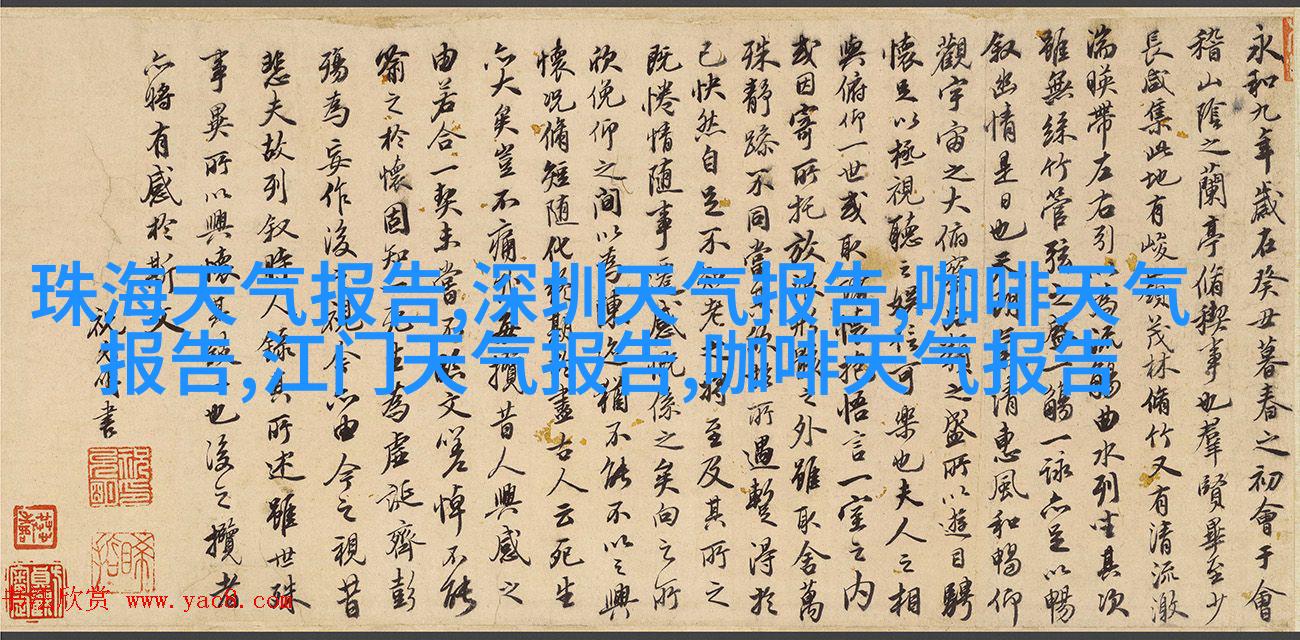 永和九年歲在癸丑暮春之初會于會
稽山陰之蘭亭脩稧事也羣賢畢至少
長咸集此地有峻嶺茂林脩竹又有清流激
湍暎帶左右引以為流觴曲水列坐其次
雖無絲竹管弦之盛一觴一詠亦足以暢
叙幽情是日也天朗氣清惠風和暢仰
觀宇宙之大俯察品類之盛所以遊目騁
懷足以極視聽之娛信可樂也夫人之相
與俯仰一世或取諸懷抱悟言一室之內
或因寄所托放浪形骸之外雖取舍萬
殊静躁不同當其欣於所遇暫得於
己快然自足不知老之將至及其所之
既惓情随事遷感慨係之矣向之所
欣俛仰之間以為陳迹猶不能不以之興
懷况脩短随化終期於盡古人云死生
亦大矣豈不痛哉每攬昔人興感之
由若合一契未嘗不臨文嗟悼不能
喻之於懷固知一死生為虛誕齊彭
殤為妄作後之視今亦由今之視昔
悲夫故列叙時人録其所述雖世殊
事異所以興懷其致一也後之攬者
亦將有感於斯文
祝允明書
珠海天气报告,深圳天气报告,咖啡天气
报告,江门天气报告,咖啡天气报告
欣赏 www.yac8.com